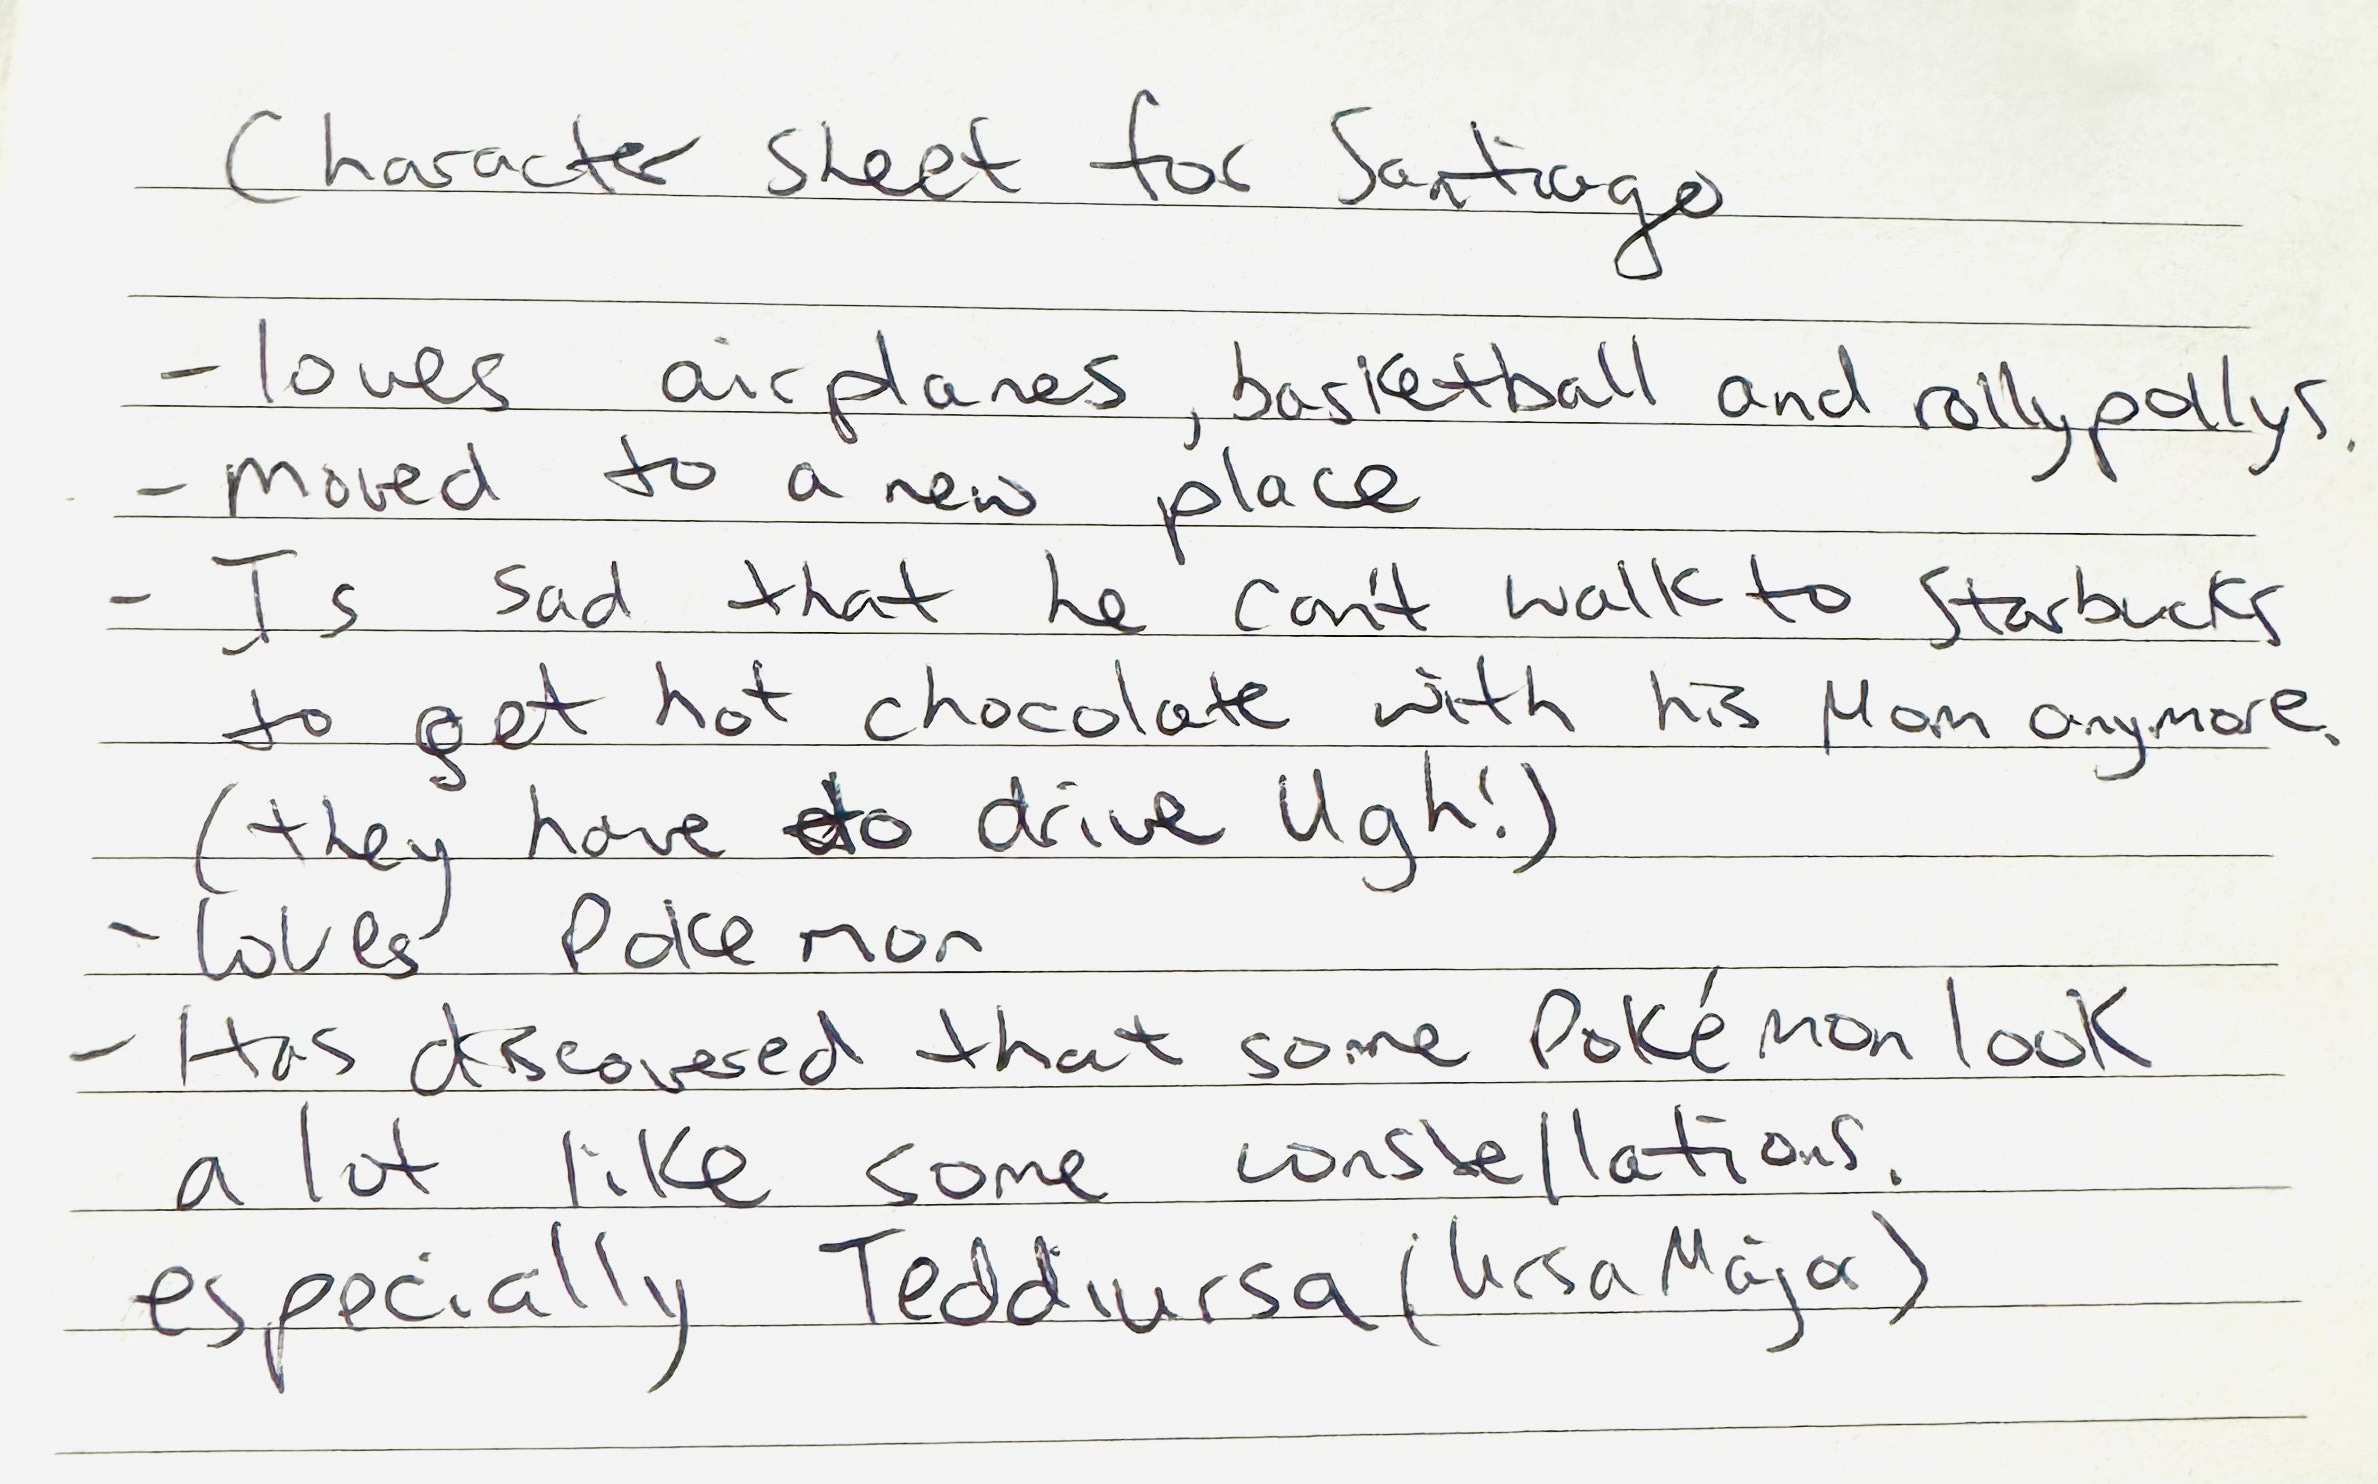 Character sheet for Santiago
- loves airplanes, basketball and rollypollys.
- moved to a new place
- Is sad that he can't walk to Starbucks
to get hot chocolate with his Mom anymore.
(they have to drive Ugh!)
- loves Pokemon
- Has discovered that some Pokémon look
a lot like some constellations.
especially Teddiursa (Ursa Major)